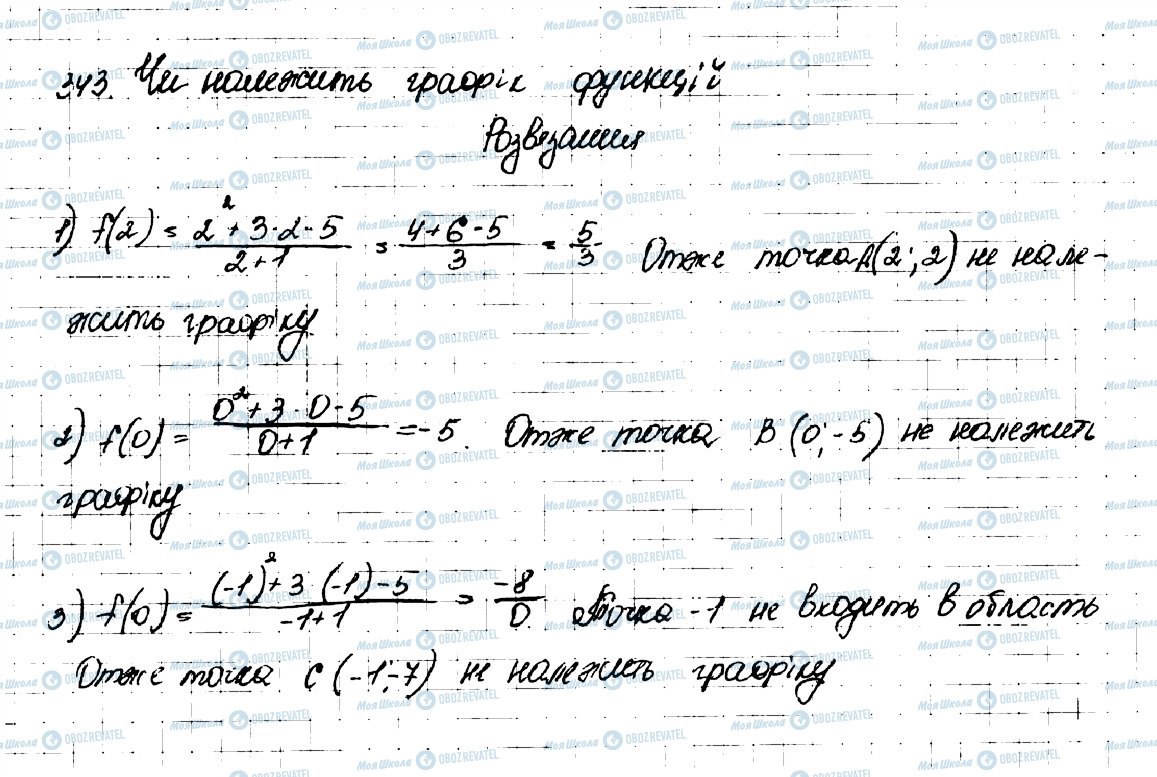 343. Чи належить графік функцій
Розвязання
1) f(2) = (2² + 3·2 - 5)/(2+1) = (4+6-5)/3 = 5/3 Отже точка A(2; 2) не нале-
жить графіку
2) f(0) = (0² + 3·0 - 5)/(0+1) = -5. Отже точка B (0; -5) не належить
графіку
3) f(0) = ((-1)² + 3 (-1) - 5)/(-1+1) = -8/0. Точка -1 не входить в область
Отже точка C (-1; -7) не належить графіку
Моя Школа OBOZREVATEL